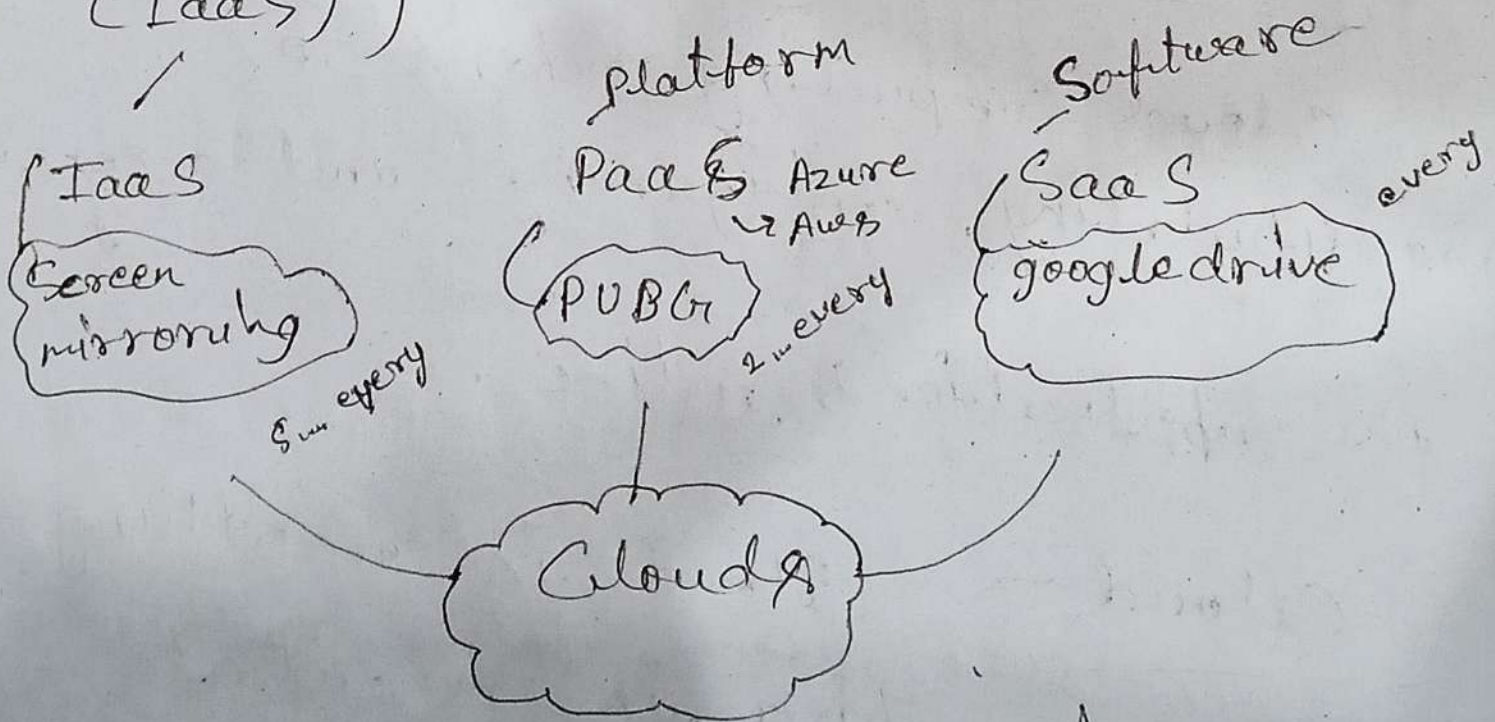 (IaaS))
Platform
Software
IaaS
PaaS Azure
AWS
SaaS
every
Screen
mirroring
PUBG
google drive
2 every
every
Clouds